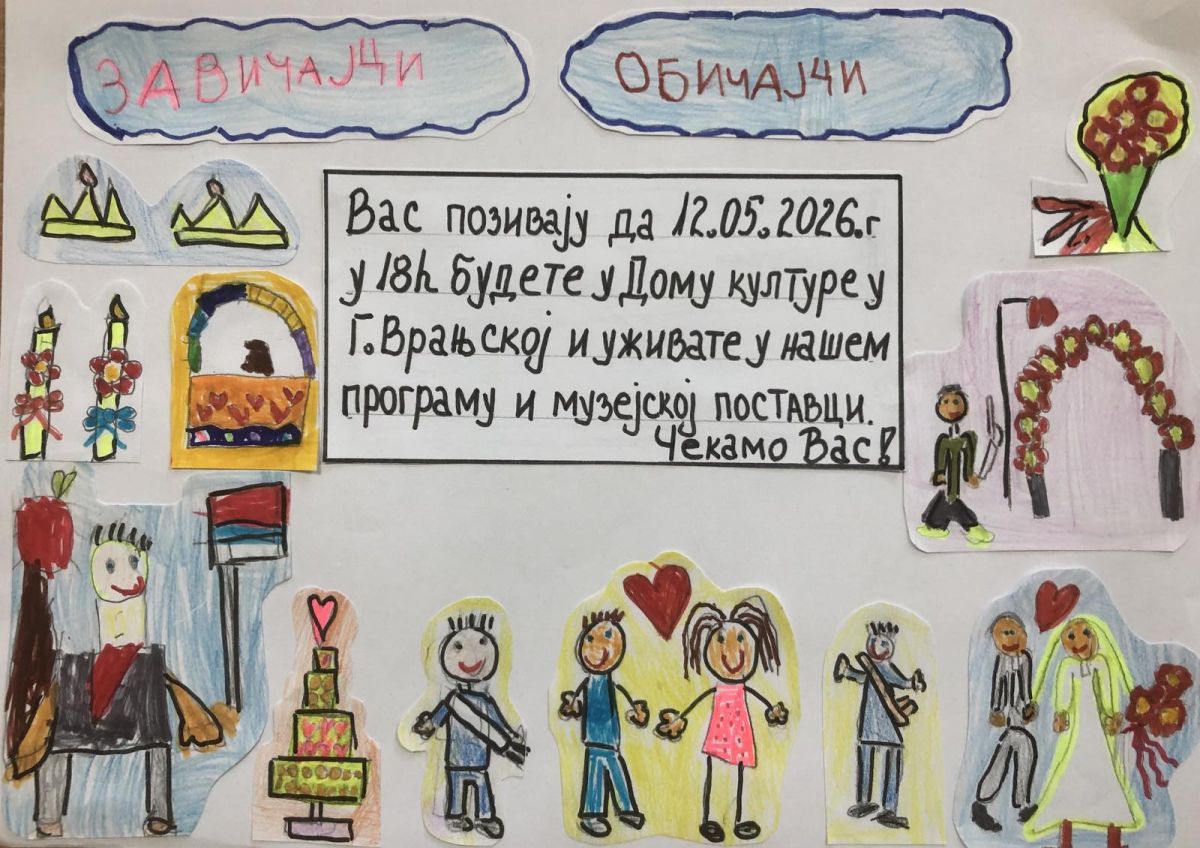 ЗАВИЧАЈЦИ
ОБИЧАЈЧИ
Вас позивају да 12.05.2026.г
у 18h будете у Дому културе у
Г. Врањској и уживате у нашем
програму и музејској поставци.
Чекамо Вас!